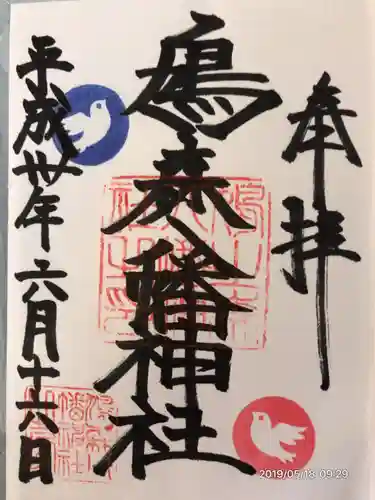 奉拝
鳩森八幡神社
平成卅年六月十六日
2019/05/18 09:29